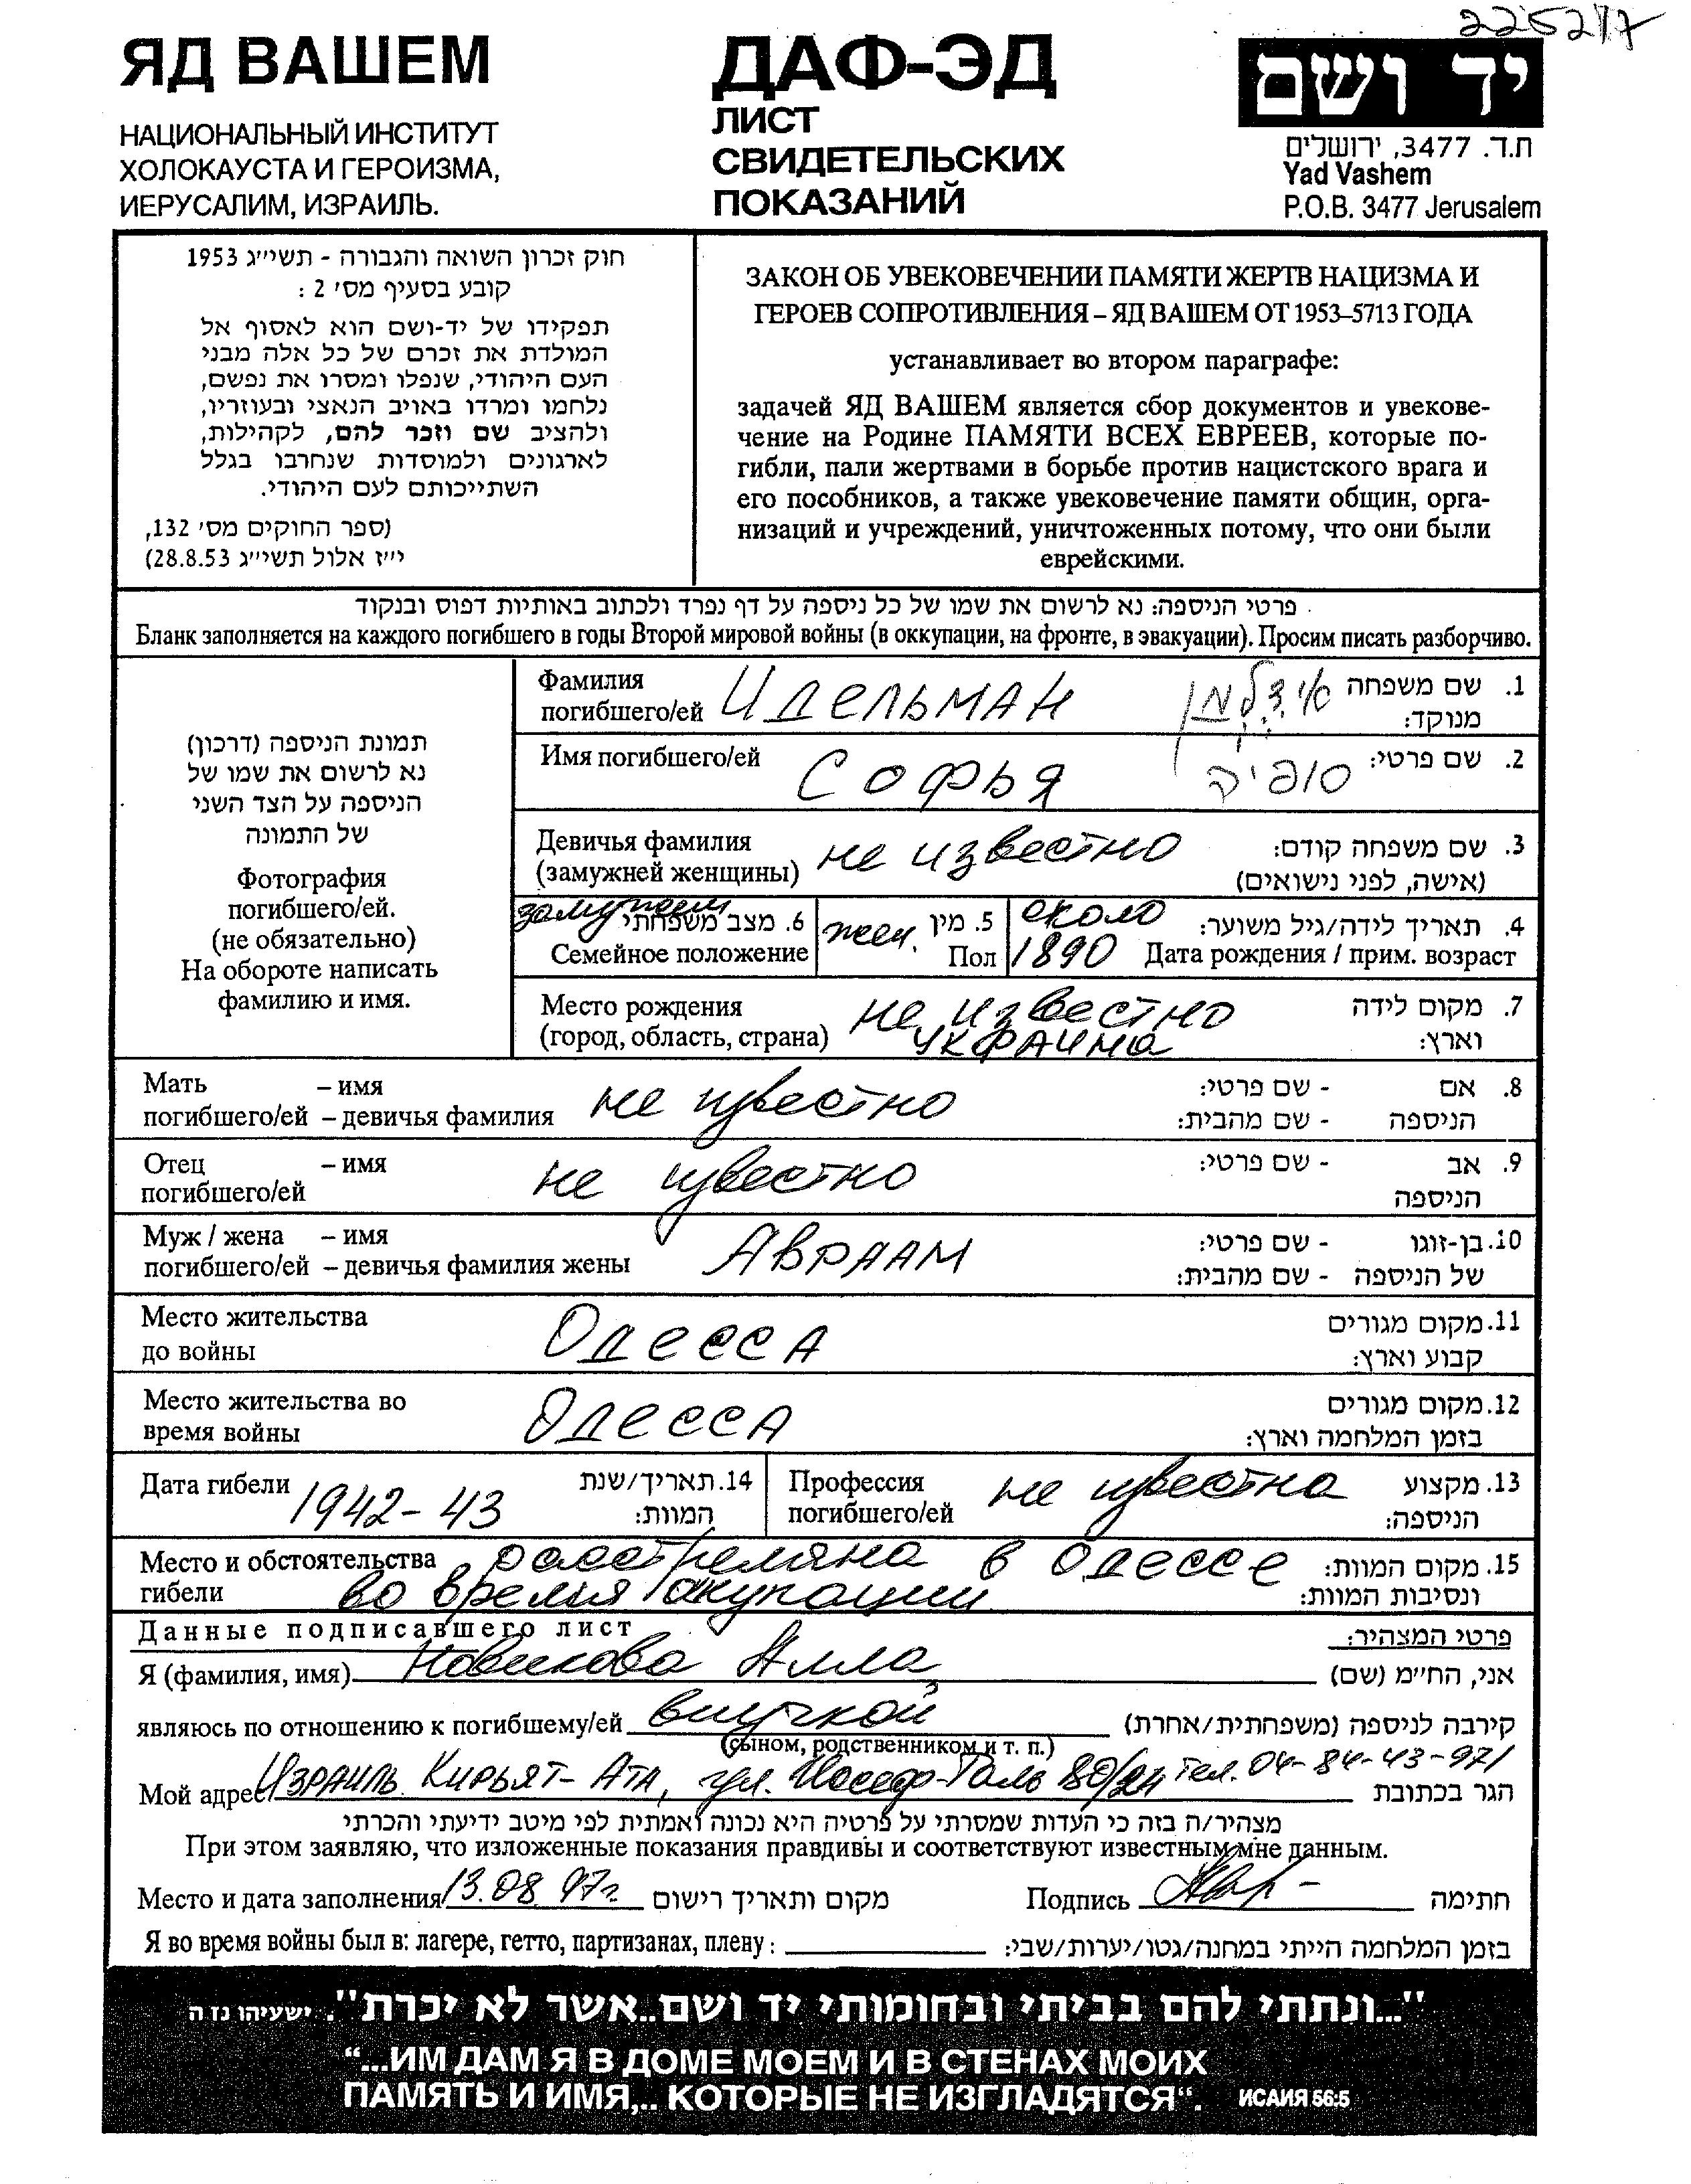 225217
ЯД ВАШЕМ
НАЦИОНАЛЬНЫЙ ИНСТИТУТ
ХОЛОКАУСТА И ГЕРОИЗМА,
ИЕРУСАЛИМ, ИЗРАИЛЬ.
ДАФ-ЭД
ЛИСТ
СВИДЕТЕЛЬСКИХ
ПОКАЗАНИЙ
יד ושם
ת.ד. 3477, ירושלים
Yad Vashem
P.O.B. 3477 Jerusalem
חוק זכרון השואה והגבורה - תשי״ג 1953
קובע בסעיף מס׳ 2 :
תפקידו של יד-ושם הוא לאסוף אל
המולדת את זכרם של כל אלה מבני
העם היהודי, שנפלו ומסרו את נפשם,
נלחמו ומרדו באויב הנאצי ובעוזריו,
ולהציב שם וזכר להם, לקהילות,
לארגונים ולמוסדות שנחרבו בגלל
השתייכותם לעם היהודי.
(ספר החוקים מס׳ 132,
י״ז אלול תשי״ג 28.8.53)
ЗАКОН ОБ УВЕКОВЕЧЕНИИ ПАМЯТИ ЖЕРТВ НАЦИЗМА И
ГЕРОЕВ СОПРОТИВЛЕНИЯ – ЯД ВАШЕМ ОТ 1953–5713 ГОДА
устанавливает во втором параграфе:
задачей ЯД ВАШЕМ является сбор документов и увекове-
чение на Родине ПАМЯТИ ВСЕХ ЕВРЕЕВ, которые по-
гибли, пали жертвами в борьбе против нацистского врага и
его пособников, а также увековечение памяти общин, орга-
низаций и учреждений, уничтоженных потому, что они были
еврейскими.
פרטי הניספה: נא לרשום את שמו של כל ניספה על דף נפרד ולכתוב באותיות דפוס ובנקוד
Бланк заполняется на каждого погибшего в годы Второй мировой войны (в оккупации, на фронте, в эвакуации). Просим писать разборчиво.
תמונת הניספה (דרכון)
נא לרשום את שמו של
הניספה על הצד השני
של התמונה
Фотография
погибшего/ей.
(не обязательно)
На обороте написать
фамилию и имя.
Фамилия
погибшего/ей Идельман אידלמן 1. שם משפחה
מנוקד:
Имя погибшего/ей Софья סופיה 2. שם פרטי:
Девичья фамилия
(замужней женщины) не известно 3. שם משפחה קודם:
(אישה, לפני נישואים)
замужем 6. מצב משפחתי
Семейное положение
жен. 5. מין
Пол
около 4. תאריך לידה/גיל משוער:
1890 Дата рождения / прим. возраст
Место рождения
(город, область, страна) не известно 7. מקום לידה
Украина וארץ:
Мать – имя
погибшего/ей – девичья фамилия не известно 8. אם - שם פרטי:
הניספה - שם מהבית:
Отец – имя
погибшего/ей не известно 9. אב - שם פרטי:
הניספה
Муж / жена – имя
погибшего/ей – девичья фамилия жены Авраам 10. בן-זוגו - שם פרטי:
של הניספה - שם מהבית:
Место жительства
до войны Одесса 11. מקום מגורים
קבוע וארץ:
Место жительства во
время войны Одесса 12. מקום מגורים
בזמן המלחמה וארץ:
Дата гибели 1942-43 14. תאריך/שנת
המוות:
Профессия
погибшего/ей не известна 13. מקצוע
הניספה:
Место и обстоятельства расстреляна в Одессе 15. מקום המוות:
гибели во время окупации ונסיבות המוות:
Данные подписавшего лист פרטי המצהיר:
Я (фамилия, имя) Новикова Алла אני, החי״מ (שם)
являюсь по отношению к погибшему/ей внучкой קירבה לניספה (משפחתית/אחרת)
(сыном, родственником и т. п.)
Мой адрес Израиль Кирьят-Ата, ул. Иосеф-Таль 80/24 тел. 04-84-43-971 הגר בכתובת
מצהיר/ה בזה כי העדות שמסרתי על פרטיה היא נכונה ואמתית לפי מיטב ידיעתי והכרתי
При этом заявляю, что изложенные показания правдивы и соответствуют известным мне данным.
Место и дата заполнения 13.08.97г מקום ותאריך רישום Подпись חתימה
Я во время войны был в: лагере, гетто, партизанах, плену : בזמן המלחמה הייתי במחנה/גטו/יערות/שבי:
"...ונתתי להם בביתי ובחומותי יד ושם...אשר לא יכרת". ישעיהו נז ה
“...ИМ ДАМ Я В ДОМЕ МОЕМ И В СТЕНАХ МОИХ
ПАМЯТЬ И ИМЯ,.. КОТОРЫЕ НЕ ИЗГЛАДЯТСЯ“. ИСАИЯ 56:5